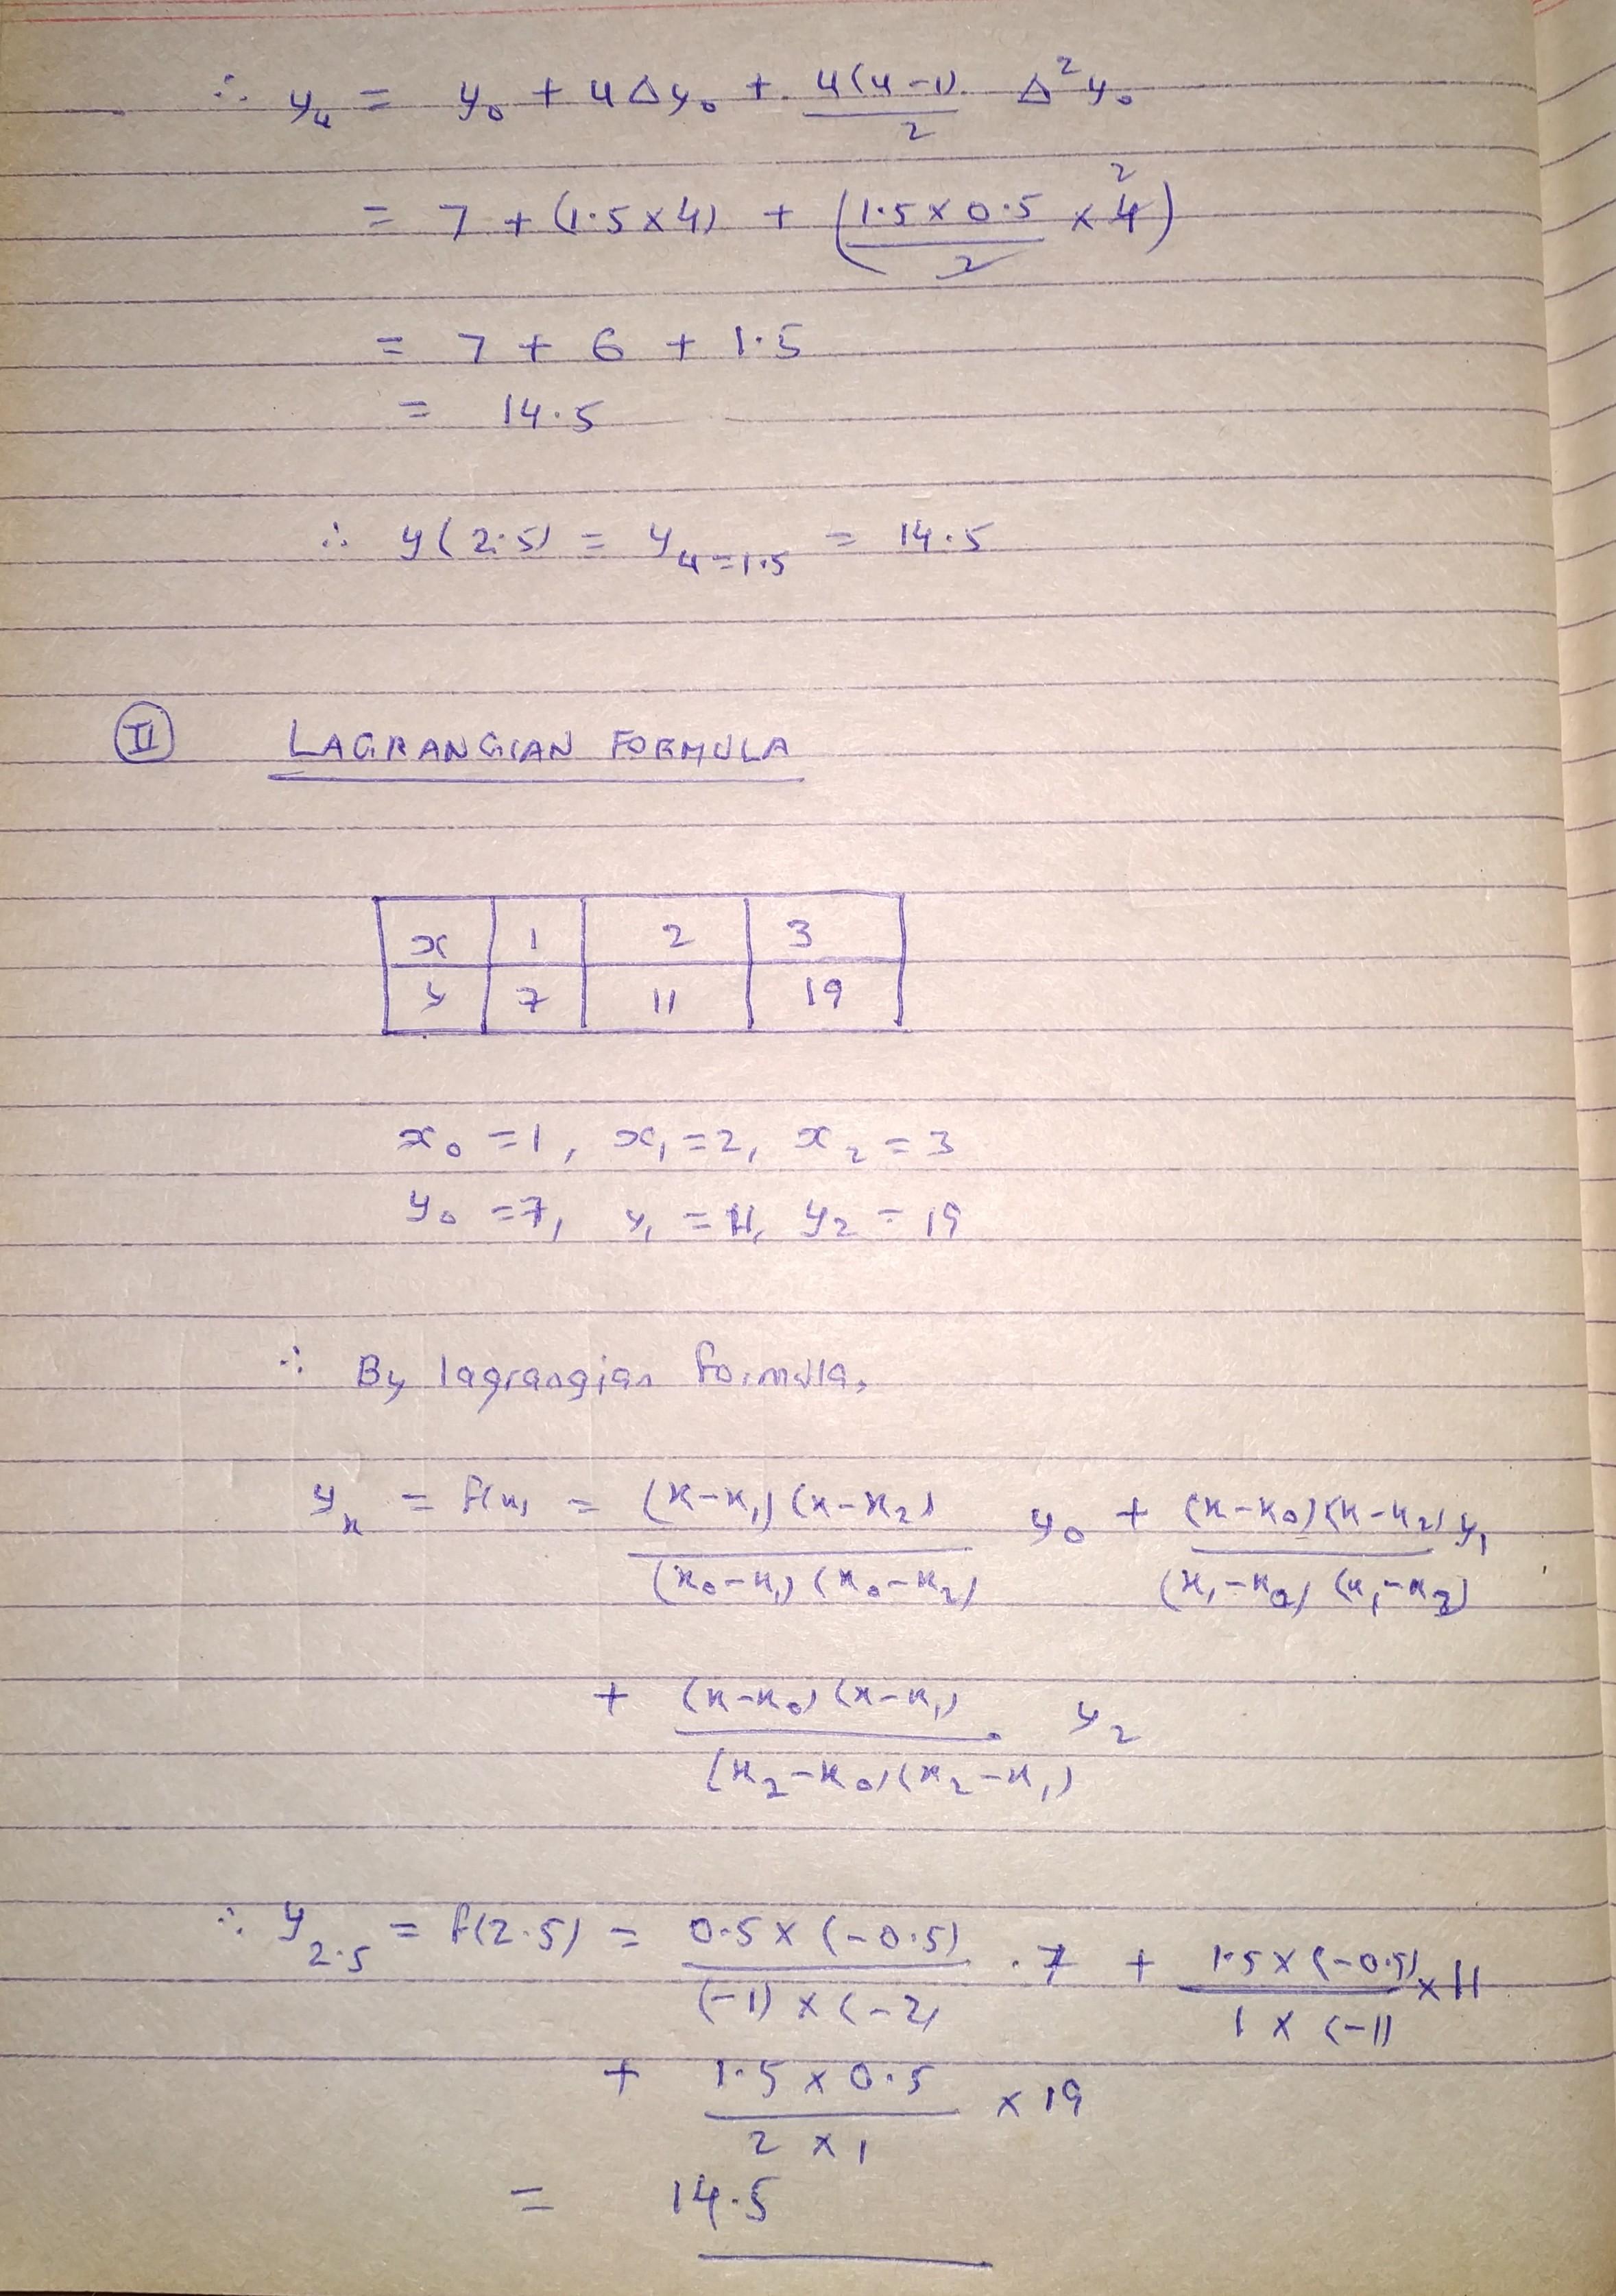 ∴ y_u = y₀ + uΔy₀ + u(u-1)/2 Δ²y₀
= 7 + (1.5 x 4) + (1.5 x 0.5/2 x 4²)
= 7 + 6 + 1.5
= 14.5
∴ y(2.5) = y_u=1.5 = 14.5
II LAGRANGIAN FORMULA
x 1 2 3
y 7 11 19
x₀ = 1, x₁ = 2, x₂ = 3
y₀ = 7, y₁ = 11, y₂ = 19
∴ By lagrangian formula,
y_x = f(x) = (x-x₁)(x-x₂)/(x₀-x₁)(x₀-x₂) y₀ + (x-x₀)(x-x₂)/(x₁-x₀)(x₁-x₂) y₁
+ (x-x₀)(x-x₁)/(x₂-x₀)(x₂-x₁) y₂
∴ y_2.5 = f(2.5) = 0.5 x (-0.5)/(-1) x (-2) . 7 + 1.5 x (-0.5)/1 x (-1) x 11
+ 1.5 x 0.5/2 x 1 x 19
= 14.5